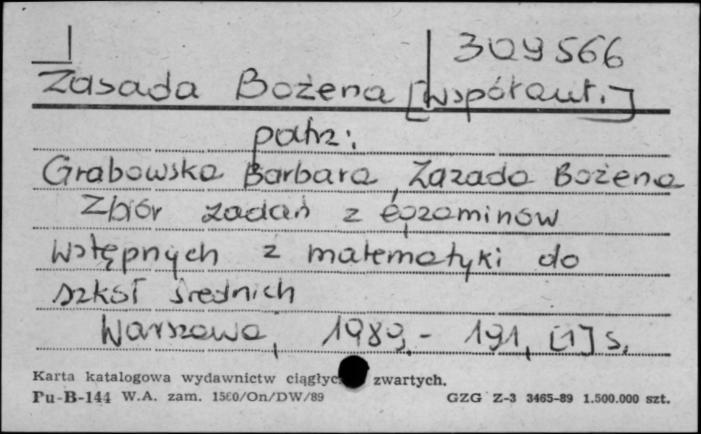 I 309566
Zasada Bożena [współaut.]
patrz:
Grabowska Barbara, Zazada Bożena
Zbiór zadań z egzaminów
wstępnych z matematyki do
szkół średnich
Warszawa, 1989.- 191, [1] s.
Karta katalogowa wydawnictw ciągłyc zwartych.
Pu-B-144 W.A. zam. 1560/On/DW/89 GZG Z-3 3465-89 1.500.000 szt.